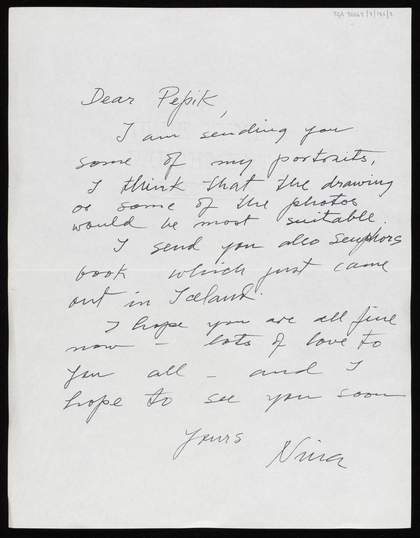 Dear Pepik,
I am sending you
some of my portraits,
I think that the drawing
or some of the photos
would be most suitable.
I send you also Seuphors
book which just came
out in Iceland.
I hope you are all fine
now – lots of love to
you all – and I
hope to see you soon
Yours
Nina